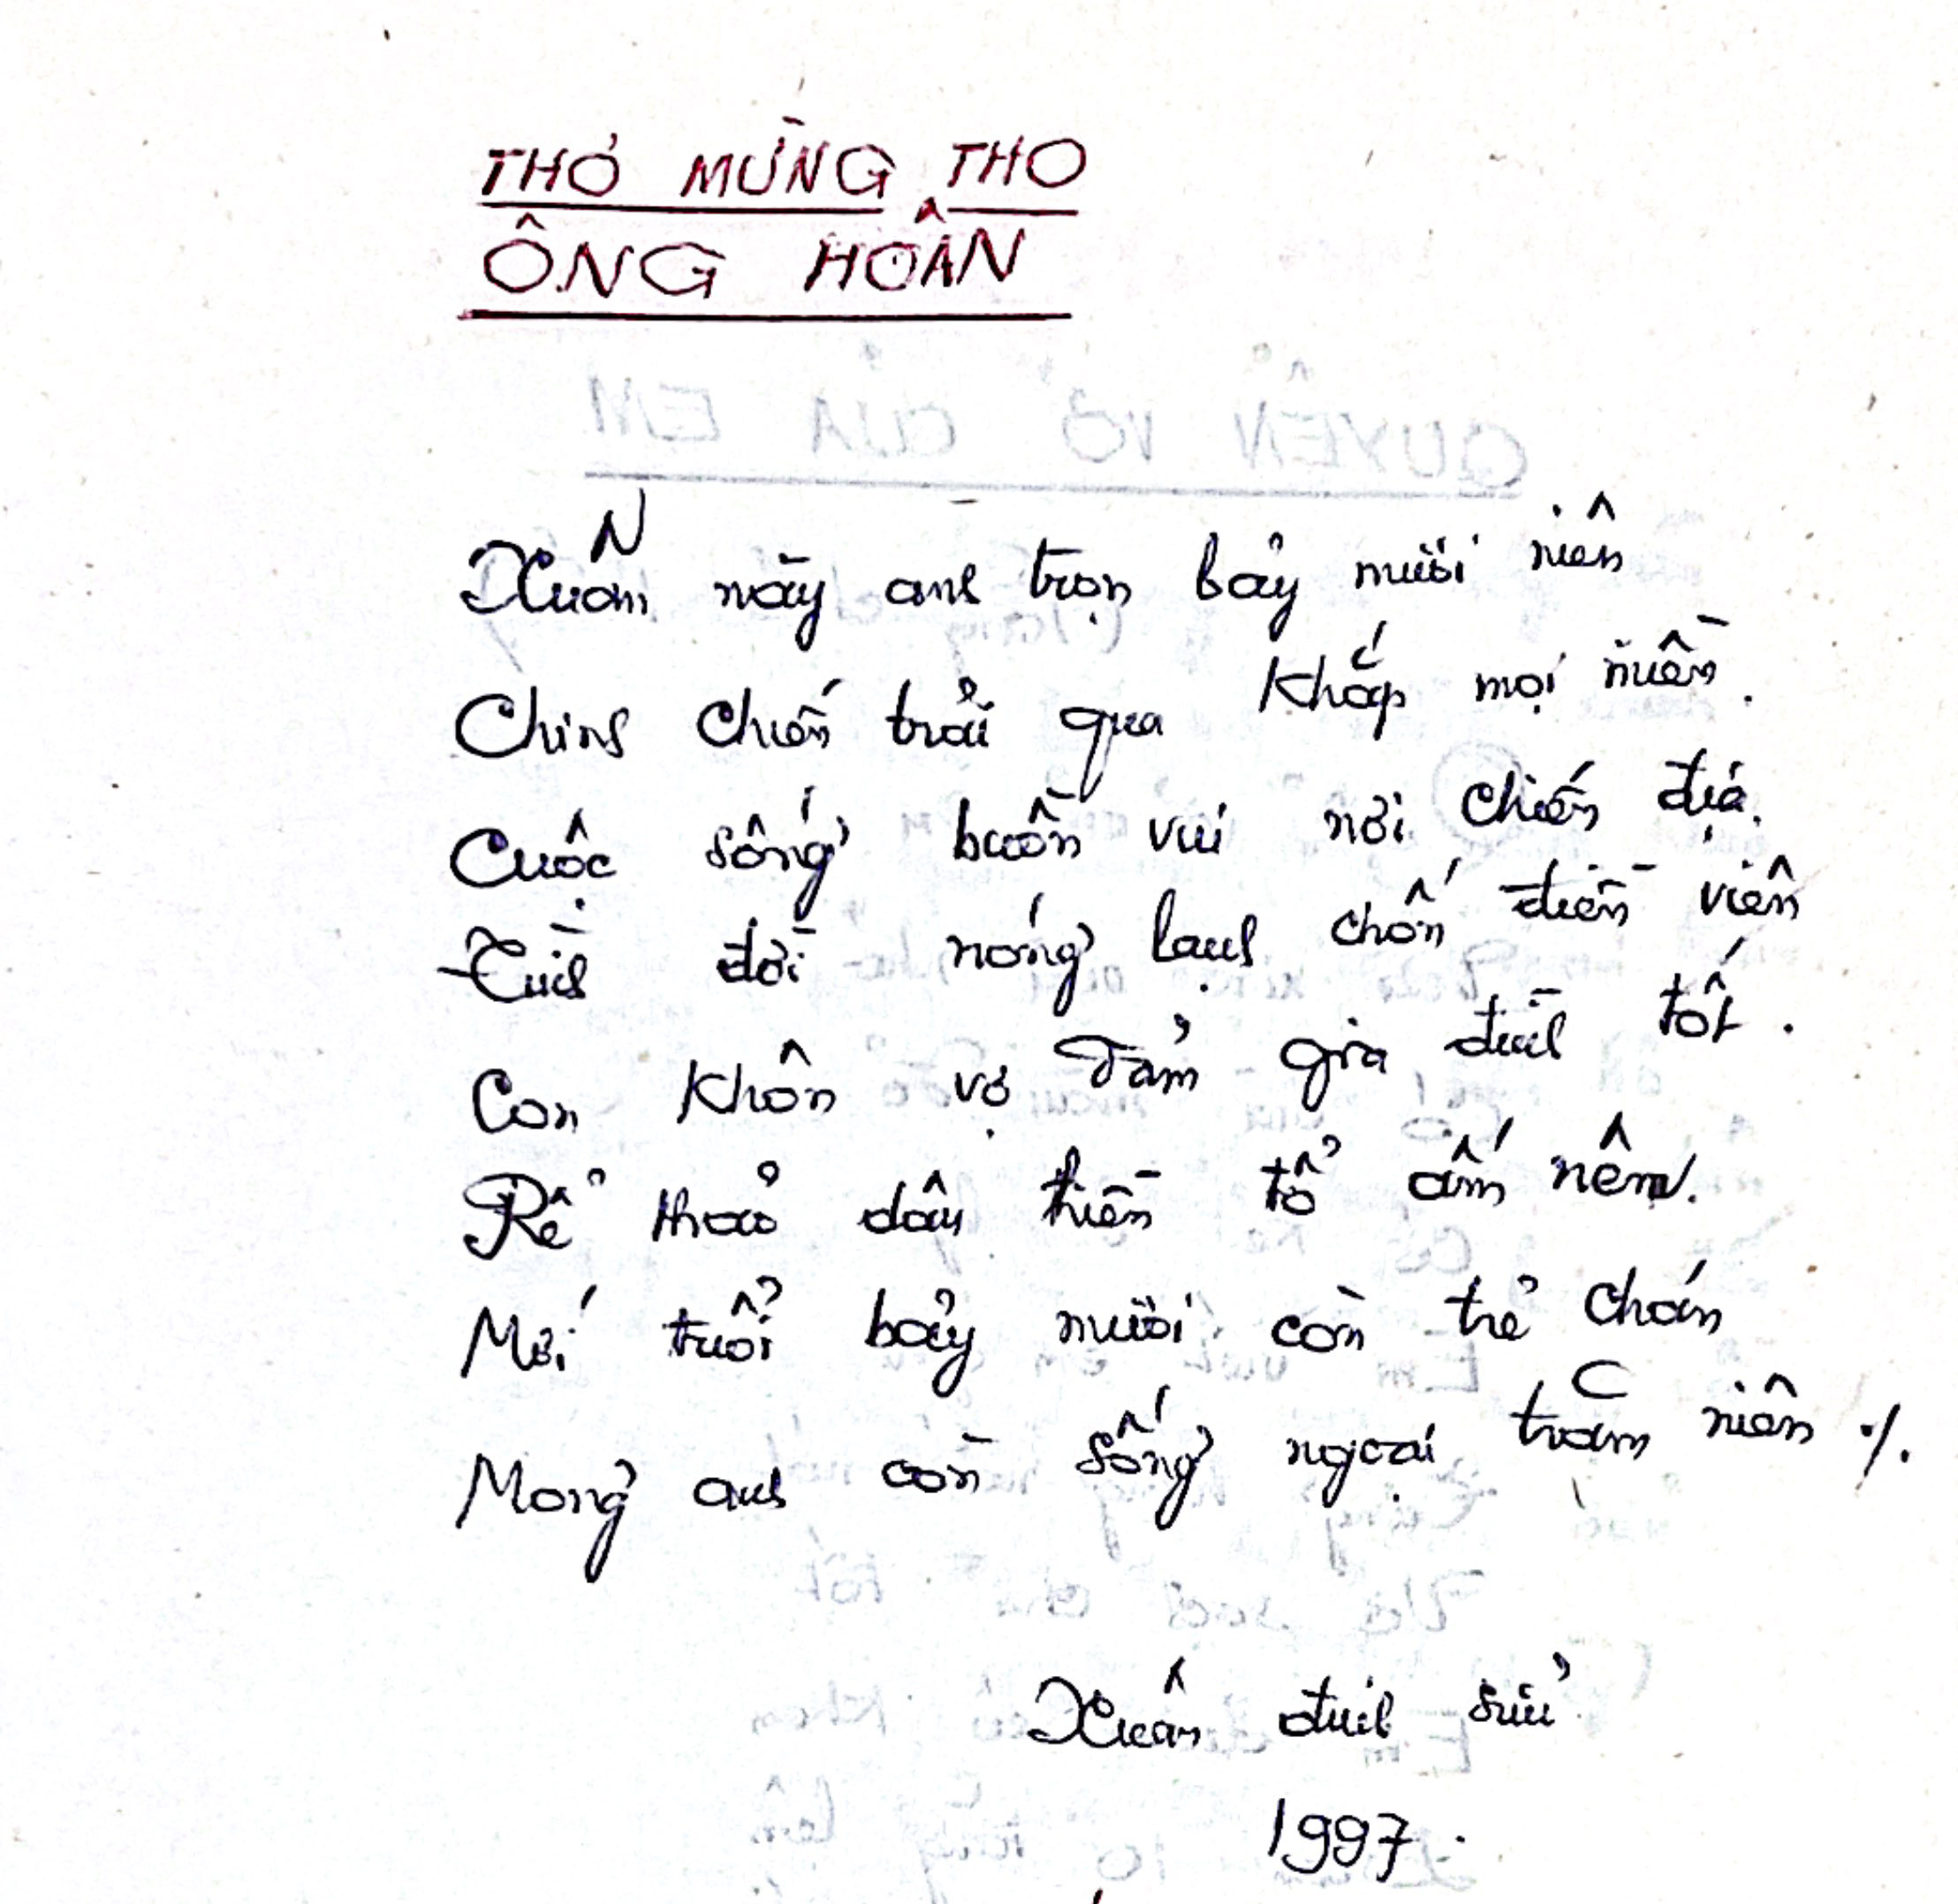 THƠ MỪNG THỌ
ÔNG HOÂN
Xuân này anh trọn bảy mươi niên
Chinh chiến trải qua khắp mọi miền.
Cuộc sống buồn vui nơi chiến địa.
Tình đời nóng lạnh chốn điền viên
Con khôn vợ đảm gia đình tốt.
Rể thảo dâu hiền tổ ấm nêm.
Mới tuổi bảy mươi còn trẻ chán
Mong anh còn sống ngoại trăm niên ./.
Xuân đinh sửu
1997.